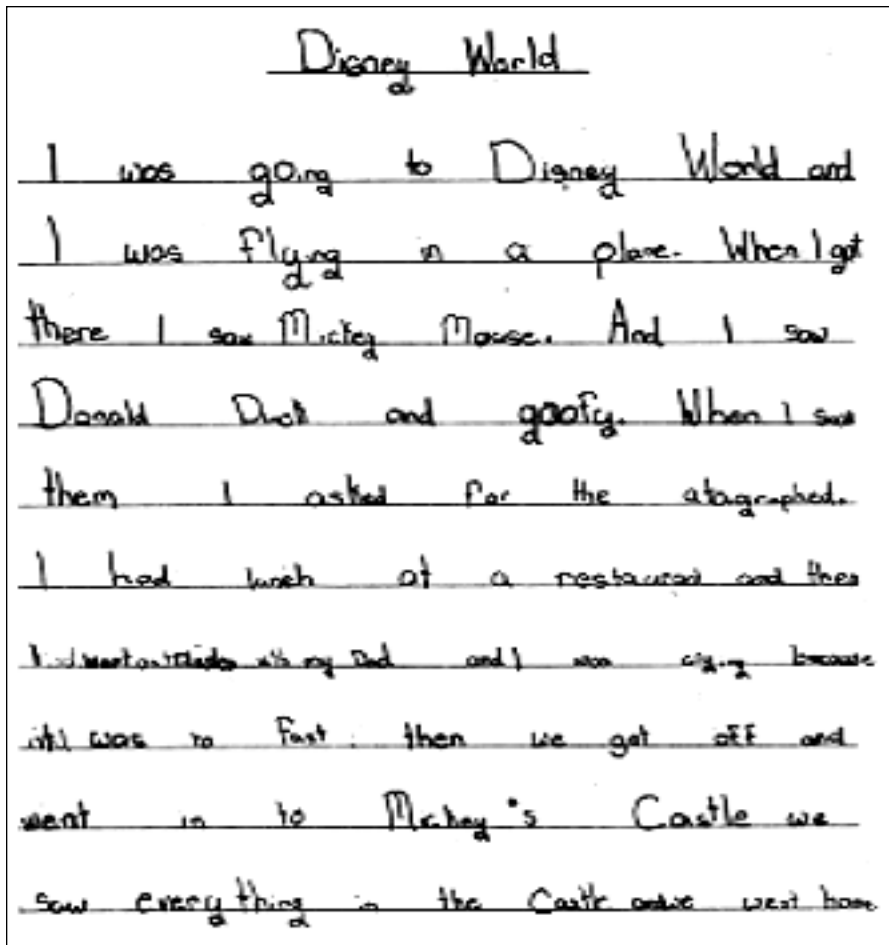 Disney World
I was going to Disney World and
I was flying in a plane. When I got
there I saw Mickey Mouse. And I saw
Donald Duck and goofy. When I saw
them I asked for the atagraphed.
I had lunch at a restaurant and then
went on with my Dad and I was crying because
was to fast. then we got off and
went in to Mickey's Castle we
saw everything in the Castle and we went home